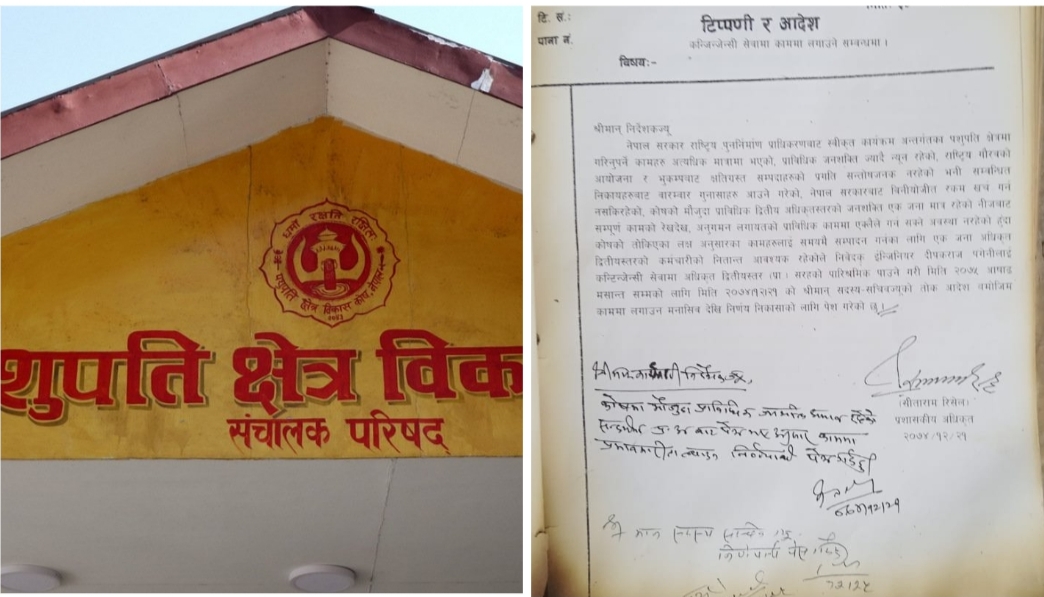 धर्मो रक्षति रक्षितः
पशुपति क्षेत्र विकास कोष, नेपाल
शुपति क्षेत्र विक
संचालक परिषद्
टि. सं.:
पाना नं.
टिप्पणी र आदेश
कन्जिन्जेन्सी सेवामा काममा लगाउने सम्बन्धमा ।
विषयः-
श्रीमान् निर्देशकज्यू
नेपाल सरकार राष्ट्रिय पुननिर्माण प्राधिकरणबाट स्वीकृत कार्यक्रम अन्तर्गतका पशुपति क्षेत्रमा
गरिनुपर्ने कामहरु अत्यधिक मात्रामा भएको, प्राविधिक जनशक्ति ज्यादै न्यून रहेको, राष्ट्रिय गौरवको
आयोजना र भुकम्पबाट क्षतिग्रस्त सम्पदाहरुको प्रगति सन्तोषजनक नरहेको भनी सम्बन्धित
निकायहरुबाट बारम्बार गुनासाहरु आउने गरेको, नेपाल सरकारबाट विनीयोजीत रकम खर्च गर्न
नसकिरहेको, कोषको मौजुदा प्राविधिक द्वितीय अधिकृतस्तरको जनशक्ति एक जना मात्र रहेको निजबाट
सम्पूर्ण कामको रेखदेख, अनुगमन लगायतको प्राविधिक काममा एक्लैले गर्न सक्ने अवस्था नरहेको हुँदा
कोषको तोकिएका लक्ष अनुसारका कामहरुलाई समयमै सम्पादन गर्नका लागि एक जना अधिकृत
द्वितीयस्तरको कर्मचारीको नितान्त आवश्यक रहेकोले निवेदक ईन्जिनियर दीपकराज पंगेनीलाई
कन्टिन्जेन्सी सेवामा अधिकृत द्वितीयस्तर (प्रा.) सरहको पारिश्रमिक पाउने गरी मिति २०७५ आषाढ
मसान्त सम्मको लागि मिति २०७४/१२/२१ को श्रीमान् सदस्य-सचिवज्यूको तोक आदेश बमोजिम
काममा लगाउन मनासिब देखि निर्णय निकासाको लागि पेश गरेको छु।
(सीताराम रिसाल)
प्रशासकीय अधिकृत
२०७४/१२/२१
कोषमा मौजुदा प्राविधिक